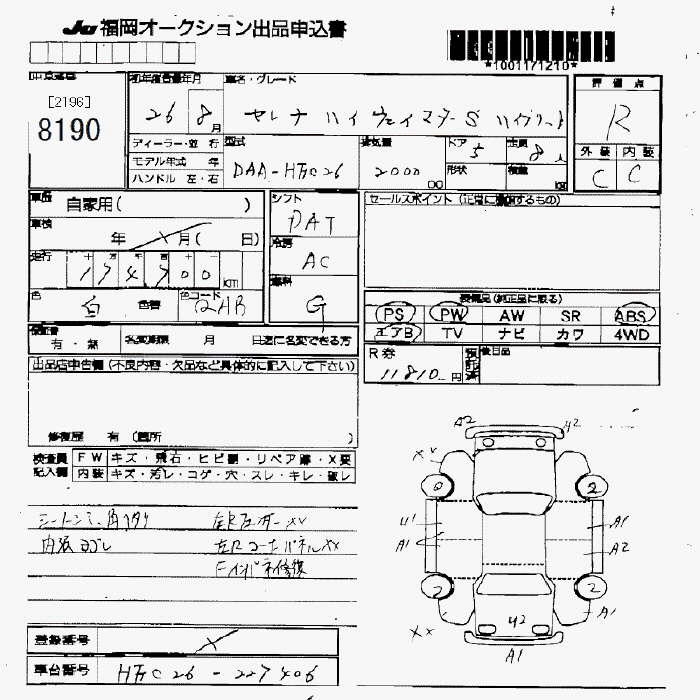 JU 福岡オークション出品申込書
*1001171210*
[2196]
8190
初年度登録年月
26 8月
車名・グレード
セレナ ハイウェイスターS ハイブリッド
評価点
R
外装 内装
C C
ディーラー・並行
モデル年式 年
ハンドル 左・右
型式
DAA-HFC26
排気量
2000
cc
ドア
5
定員
8人
形状
積載
kg
車歴
自家用( )
車検
年 月( 日)
走行
174700 km
色
白
色替
色コード
QAB
シフト
DAT
冷房
AC
燃料
G
セールスポイント (正常に機能するもの)
装備品(純正品に限る)
PS PW AW SR ABS
エアB TV ナビ カワ 4WD
保証書
有・無
名変期限 月 日迄に名変できる方
R券
11810円
預託済
後日品
出品店申告欄 (不良内容・欠品など具体的に記入して下さい)
修復歴 有 (箇所 )
検査員記入欄
FW キズ・飛石・ヒビ割・リペア跡・X要
内装 キズ・汚レ・コゲ・穴・スレ・キレ・破レ
内張ヨゴレ
左Rフェンダー XX
左Rコーナーパネル XX
Fインパネ修復
A2
42
XX
2
A1
A1
A2
2
2
A1
XX
42
A1
登録番号
車台番号
HFC26-227406